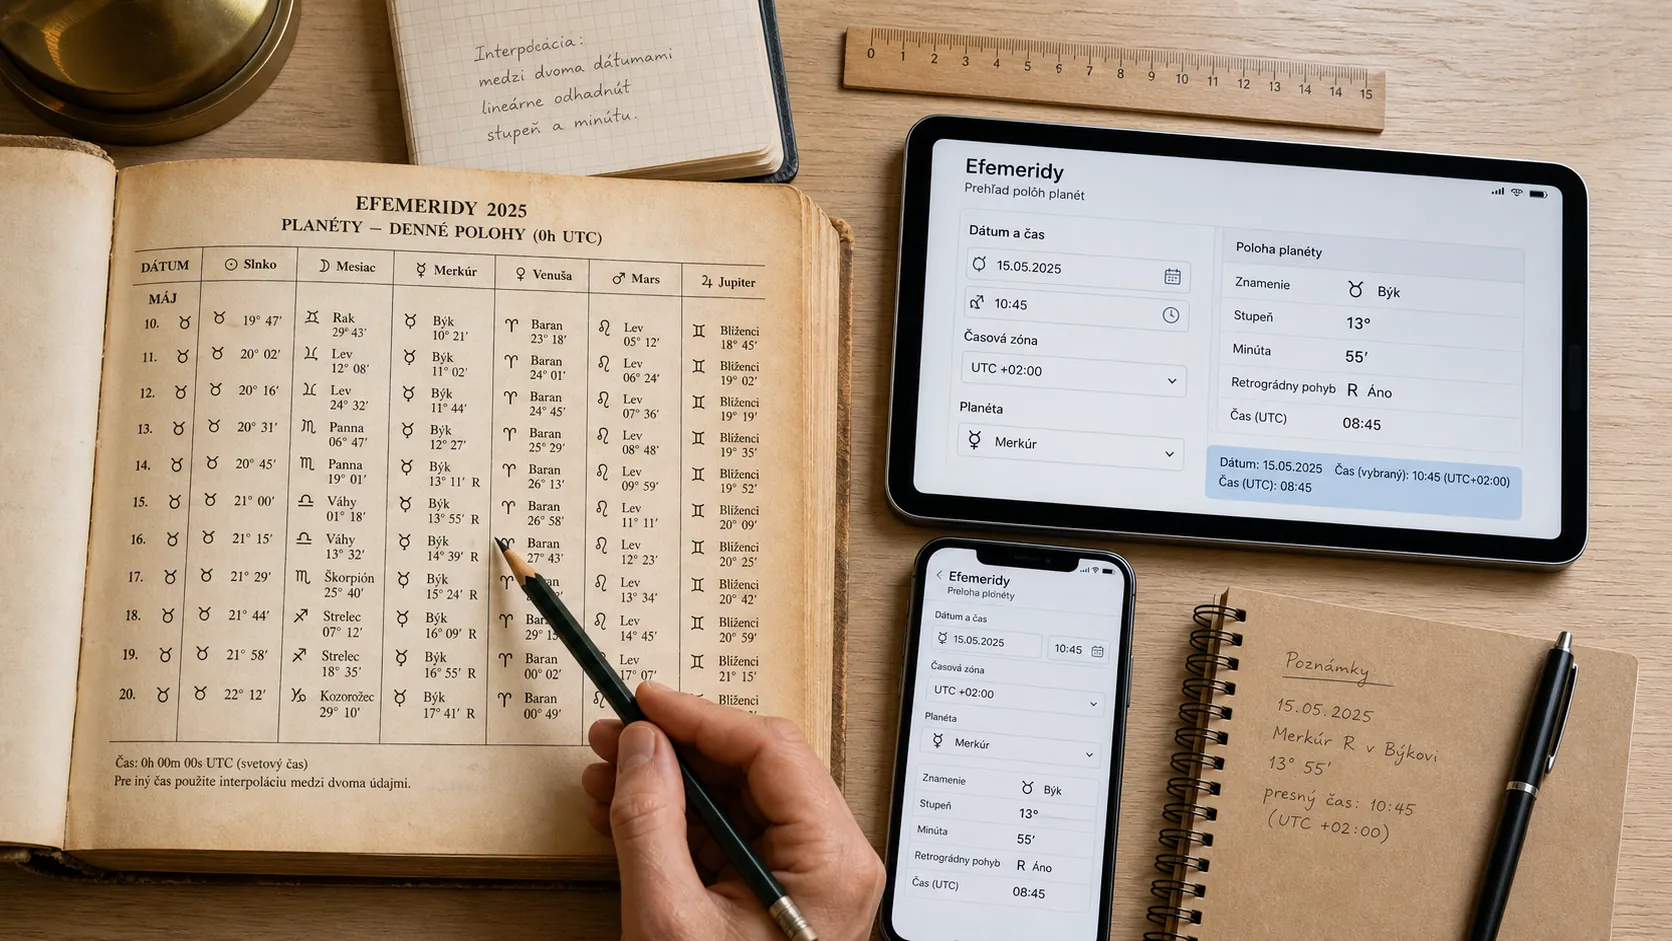 Interpolácia:
medzi dvoma dátumami
lineárne odhadnúť
stupeň a minútu.
EFEMERIDY 2025
PLANÉTY – DENNÉ POLOHY (0h UTC)
DÁTUM ☉ Slnko ☽ Mesiac ☿ Merkúr ♀ Venuša ♂ Mars ♃ Jupiter
MÁJ
10. ♉ ♉ 19° 47' ♊ Rak 29° 43' ☿ Býk 10° 21' ♈ Baran 23° 18' ♌ Lev 05° 12' ♊ Blíženci 18° 45'
11. ♉ ♉ 20° 02' Lev 12° 08' ☿ Býk 11° 02' ♈ Baran 24° 01' ♌ Lev 06° 24' ♊ Blíženci 19° 02'
12. ♉ ♉ 20° 16' Lev 24° 32' ☿ Býk 11° 44' ♈ Baran 24° 45' ♌ Lev 07° 36' ♊ Blíženci 19° 19'
13. ♉ ♉ 20° 31' ♏ Panna 06° 47' ☿ Býk 12° 27' ♈ Baran 25° 29' ♌ Lev 08° 48' ♊ Blíženci 19° 35'
14. ♉ ♉ 20° 45' ♏ Panna 19° 01' ☿ Býk 13° 11' R ♈ Baran 26° 13' ♌ Lev 09° 59' ♊ Blíženci 19° 52'
15. ♉ ♉ 21° 00' ♎ Váhy 01° 18' ☿ Býk 13° 55' R ♈ Baran 26° 58' ♌ Lev 11° 11' ♊ Blíženci 20° 09'
16. ♉ ♉ 21° 15' ♎ Váhy 13° 32' ☿ Býk 14° 39' R ♈ Baran 27° 43' ♌ Lev 12° 23' ♊ Blíženci 20° 25'
17. ♉ ♉ 21° 29' ♏ Škorpión 25° 40' ☿ Býk 15° 24' R ♈ ♌ Lev 13° 34' ♊ Blíženci 20° 42'
18. ♉ ♉ 21° 44' ♐ Strelec 07° 12' ☿ Býk 16° 09' R ♈ 29° ♌ Lev 14° 45' ♊ Blíženci 20° 59'
19. ♉ ♉ 21° 58' ♐ Strelec 18° 35' ☿ Býk 16° 55' R ♈ Baran 00° 02' Lev 17° 07' ♊ Blíženci 21° 15'
20. ♉ ♉ 22° 12' ♑ Kozorožec 29° 10' ☿ Býk 17° 41' R ♈ Baran 00° 49' ♌
Čas: 0h 00m 00s UTC (svetový čas)
Pre iný čas použite interpoláciu medzi dvoma údajmi.
0 1 2 3 4 5 6 7 8 9 10 11 12 13 14 14 15
Efemeridy
Prehľad polôh planét
Dátum a čas
15.05.2025
10:45
Časová zóna
UTC +02:00
Planéta
☿ Merkúr
Poloha planéty
Znamenie ♉ Býk
Stupeň 13°
Minúta 55'
Retrográdny pohyb R Áno
Čas (UTC) 08:45
Dátum: 15.05.2025 Čas (vybraný): 10:45 (UTC+02:00)
Čas (UTC): 08:45
Efemeridy
Preloha planéty
Dátum a čas
☿ 15.05.2025 10:45
Časová zóna
UTC +02:00
Planéta
☿ Merkúr
Znamenie ♉ Býk
Stupeň 13°
Minúta 55'
Retrográdny pohyb R Áno
Čas (UTC) 08:45
Poznámky
15.05.2025
Merkúr R v Býkovi
13° 55'
presný čas: 10:45
(UTC +02:00)